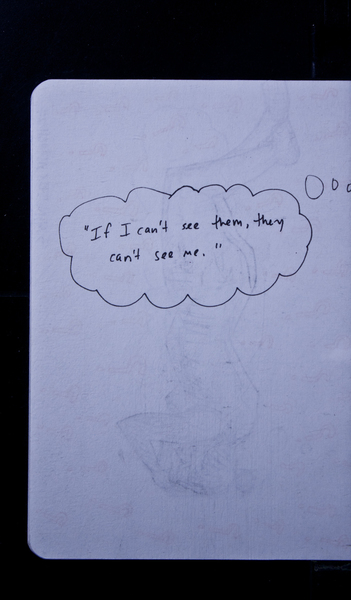 "If I can't see them, they
can't see me."